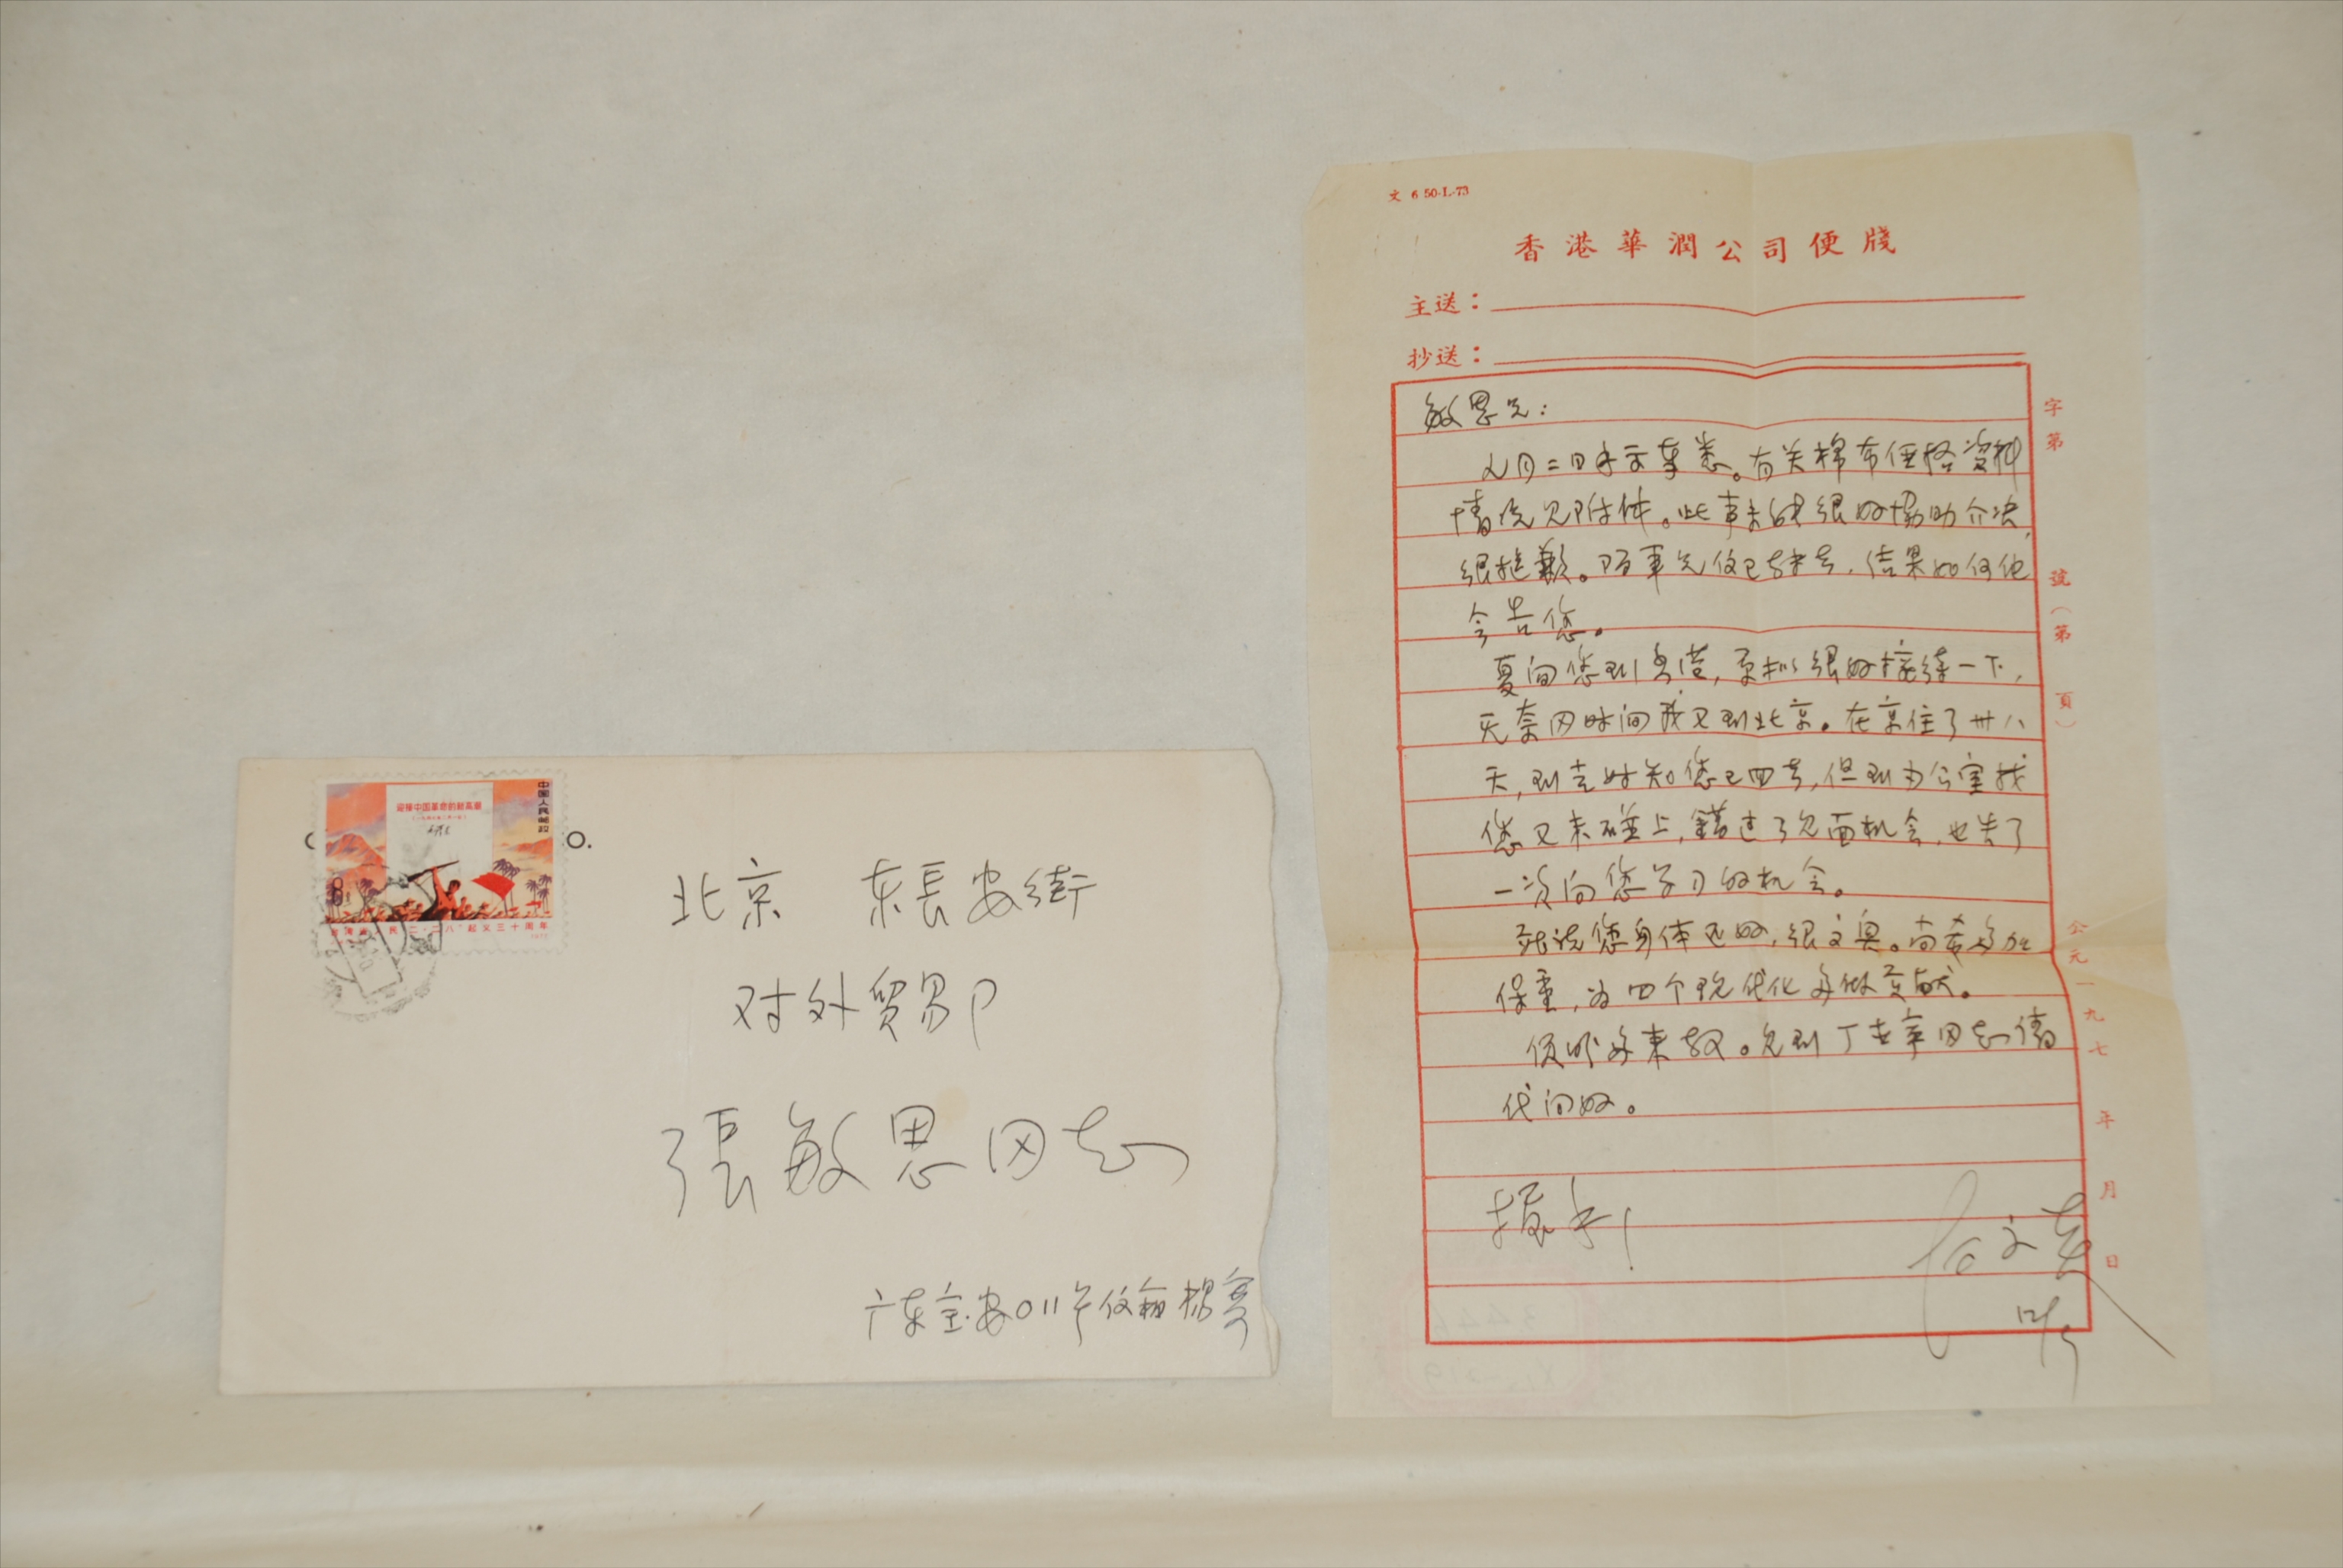 中国人民邮政
迎接中国革命的新高潮
8
台湾省人民“二·二八”起义三十周年
1977
O.
北京 东長安街
对外贸易部
張敏思同志
广东宝安011号信箱杨寄
文 6 50-1-73
香港華潤公司便牋
主送：
抄送：
字第 號（第 頁）
公元一九七 年 月 日
敏思兄：
九月二日手示奉悉。有关棉布価格资料
情况见附件。此事未能很好協助介决,
很抱歉。陌軍兄信已转去，结果如何他
会告您。
夏间您到香港，原拟很好接待一下，
无奈同时间我又到北京。在京住了卅八
天，到走时知您已回去，但到办公室找
您又未碰上，錯过了见面机会，也失了
一次向您学习的机会。
听说您身体还好，很高兴。尚希多加
保重，为四个现代化多做贡献。
便时多来教。见到丁 同志请
代问好。
握手！